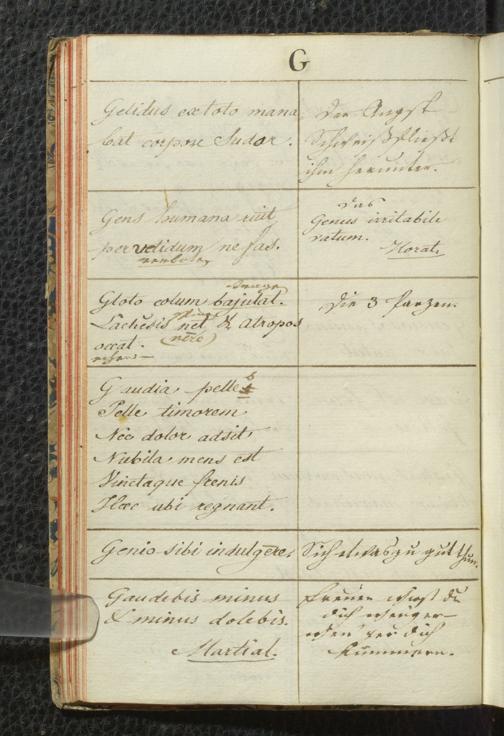 G
Gelidus ex toto mana
bat corpore Sudor.
Der Angst
Schweiß fließt
ihm herunter.
Gens humana ruit
per vetidum nefas.
verboten
das
Genus irritabile
vatum.
Horat.
Gloto colum bajulat.
Lachesis net & Atropos
(nēre)
occat.
Die 3 Parzen.
Gaudia pelle
Pelle timorem
Nec dolor adsit
Nubila mens est
Vinctaque frenis
Haec ubi regnant.
Genio sibi indulgēre.
Sich etwas zu gut thun.
Gaudebis minus
& minus dolebis.
Martial.
Freuen wirst du
dich weniger
dich
kümmern.